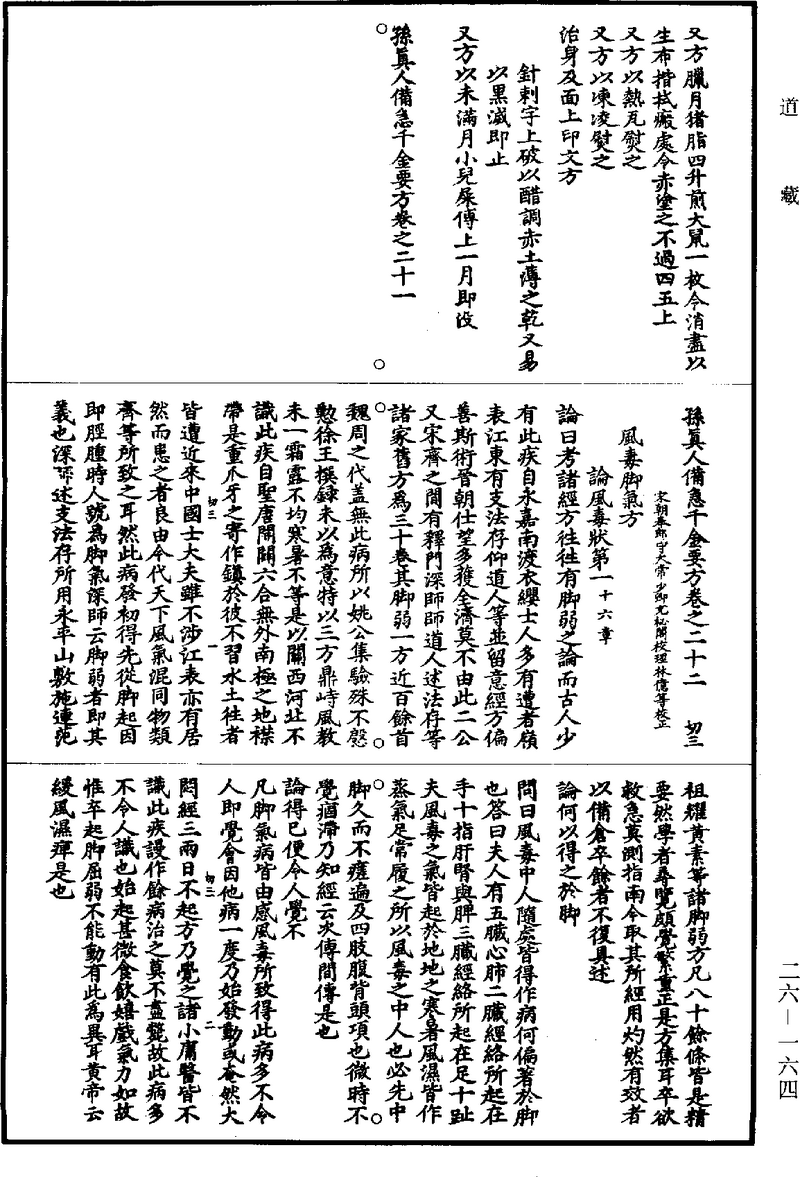 道藏
又方臘月猪脂四升煎大鼠一枚令消盡以
生布揩拭瘢處令赤塗之不過四五上
又方以熱瓦熨之
又方以凍凌熨之
治身及面上印文方
針刺字上破以醋調赤土薄之乾又易
以黑滅即止
又方以未滿月小兒屎傅上一月即沒
孫真人備急千金要方卷之二十一
孫真人備急千金要方卷之二十二 切三
宋朝奉郎守太常少卿充秘閣校理林億等校正
風毒脚氣方
論風毒狀第一十六章
論曰考諸經方往往有脚弱之論而古人少
有此疾自永嘉南渡衣纓士人多有遭者嶺
表江東有支法存仰道人等並留意經方偏
善斯術晉朝仕望多獲全濟莫不由此二公
又宋齊之間有釋門深師師道人述法存等
諸家舊方為三十卷其脚弱一方近百餘首
魏周之代蓋無此病所以姚公集驗殊不慇
懃徐王撰錄未以為意特以三方鼎峙風教
未一霜露不均寒暑不等是以關西河北不
識此疾自聖唐開闢六合無外南極之地襟
帶是重爪牙之寄作鎮於彼不習水土往者
切三 一
皆遭近來中國士大夫雖不涉江表亦有居
然而患之者良由今代天下風氣混同物類
齊等所致之耳然此病發初得先從脚起因
即脛腫時人號為脚氣深師云脚弱者即其
義也深師述支法存所用永平山敷施連范
祖耀黃素等諸脚弱方凡八十餘條皆是精
要然學者尋覽頗覺繁重正是方集耳卒欲
救急莫測指南今取其所經用灼然有效者
以備倉卒餘者不復具述
論何以得之於脚
問曰風毒中人隨處皆得作病何偏著於脚
也答曰夫人有五臟心肺二臟經絡所起在
手十指肝腎與脾三臟經絡所起在足十趾
夫風毒之氣皆起於地地之寒暑風濕皆作
蒸氣足常履之所以風毒之中人也必先中
脚久而不瘥遍及四肢腹背頭項也微時不
覺痼滯乃知經云次傳間傳是也
論得已便令人覺不
凡脚氣病皆由感風毒所致得此病多不令
人即覺會因他病一度乃始發動或奄然大
悶經三兩日不起方乃覺之諸小庸醫皆不
切三 二
識此疾謾作餘病治之莫不盡斃故此病多
不令人識也始起甚微食飲嬉戲氣力如故
惟卒起脚屈弱不能動有此為異耳黃帝云
緩風濕痺是也
二六—一六四